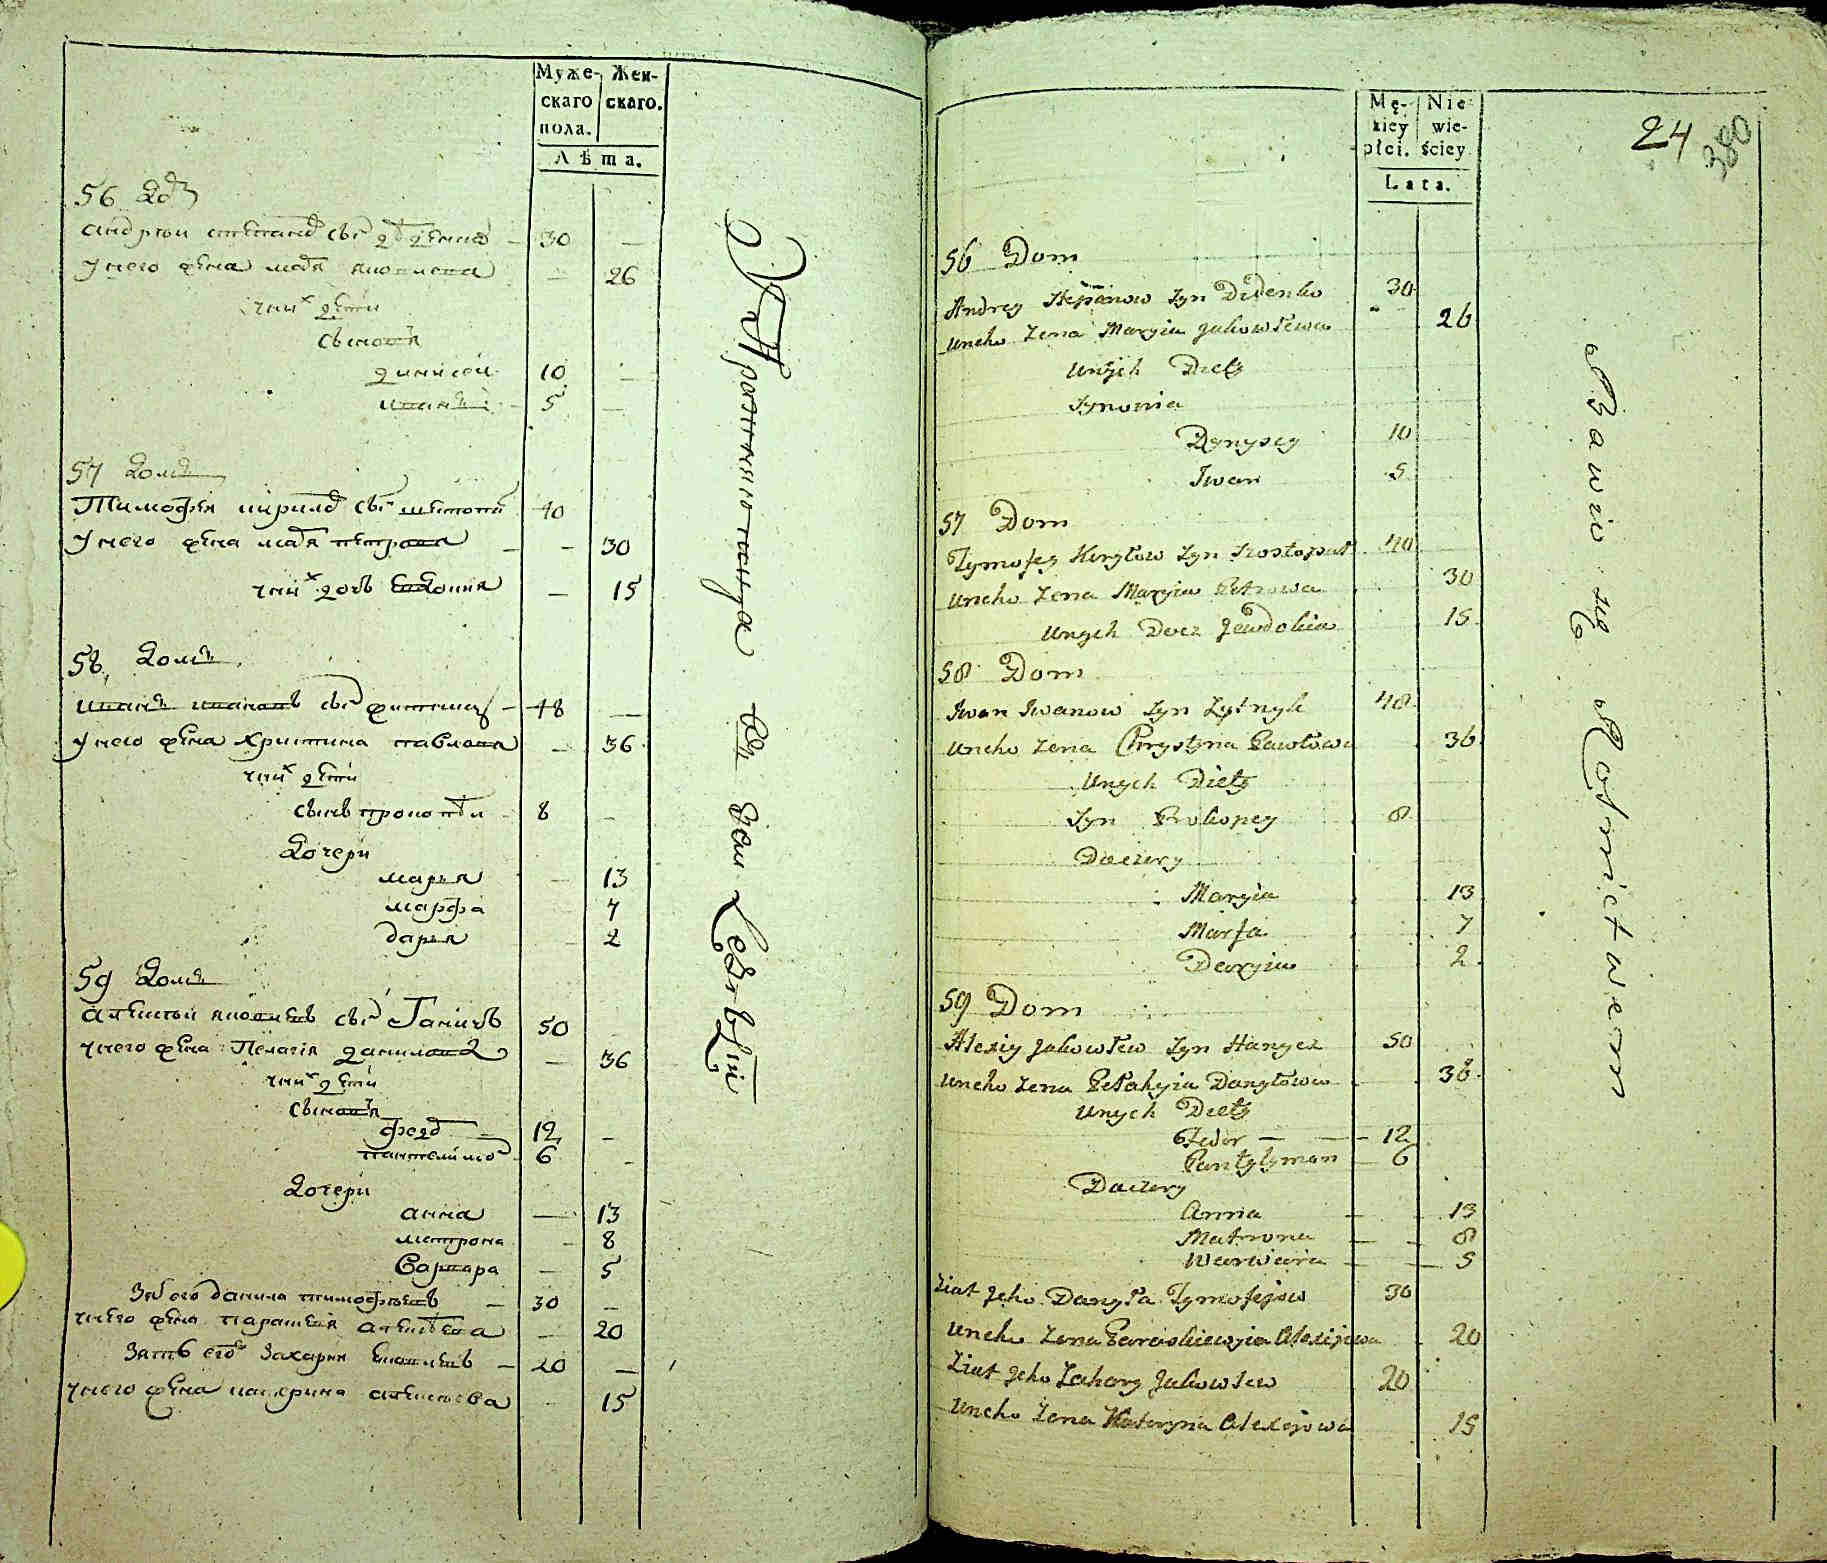 Муже- Жен-
скаго скаго.
пола.
Лѣта.
56 Домъ
Андрей Степановъ сынъ Диденко — 30 —
У него жена Марья Яковлева — 26
У нихъ дети
Сыновья
Динисей 10 —
Иванъ 5 —
57 Домъ
Тимофей Кирилов сынъ 40
У него жена Марья Петрова — — 30
У нихъ дочь Евдокия — 15
58 Домъ
Иванъ Ивановъ сынъ — 48 —
У него жена Христина Павлова — 36
У нихъ дети
Сынъ Прокопей 8 —
Дочери
Марья — 13
Марфа 7
Дарья 2
59 Домъ
Алексей Яковлевъ сынъ Ганичъ 50
У него жена Пелагея Данилова — 36
У нихъ дети
Сыновья
Федор — 12 —
Пантелимон 6 —
Дочери
Анна — 13
Матрона — 8
Варвара — 5
Зять его Данила Тимофеевъ — 30 —
У него жена Парасковия Алексеева — 20
Зять его Захарий Яковлевъ — 20 —
У него жена Катерина Алексеева 15
Mę- Nie
zkiey wie-
płci. ściey
Lata.
24
380
56 Dom
Andrey Stepanow Syn Didenko 30
Uneho Zena Maryia Jakowlewa 26
Unych Diety
Synowia
Dynysey 10
Iwan 5
57 Dom
Tymofey Kiryłow Syn 40
Uneho Zena Maryia Petrowa 30
Unych Docz Jewdokia 15
58 Dom
Iwan Iwanow Syn Zytnyk 48
Uneho Zena Chrystyna Pawłowa 36
Unych Diety
Syn Prokopey 8
Daczery
Maryia 13
Marfa 7
Daryia 2
59 Dom
Alexiy Jakowlew Syn Hanycz 50
Uneho Zena Pełahyia Danyłowa 36
Unych Diety
Fedor — — 12
Pantylymon — 6
Daczery
Anna — 13
Matrona — — 8
Warwara — — 5
Ziat Jeho Danyła Tymofejow 30
Uneho Zena Paraskiewyia Alexijewa 20
Ziat Jeho Zahary Jakowlew 20
Uneho Zena Kateryna Alexejowa 15